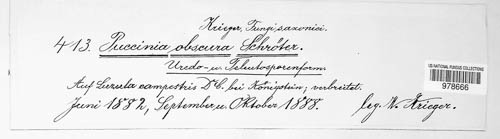 Krieger, Fungi saxonici.
413. Puccinia obscura Schröter.
Uredo- u. Teleutosporenform.
Auf Luzula campestris DC. bei Königstein; verbreitet.
Juni 1882, September u. Oktober 1888. leg. W. Krieger.
US NATIONAL FUNGUS COLLECTIONS
978666